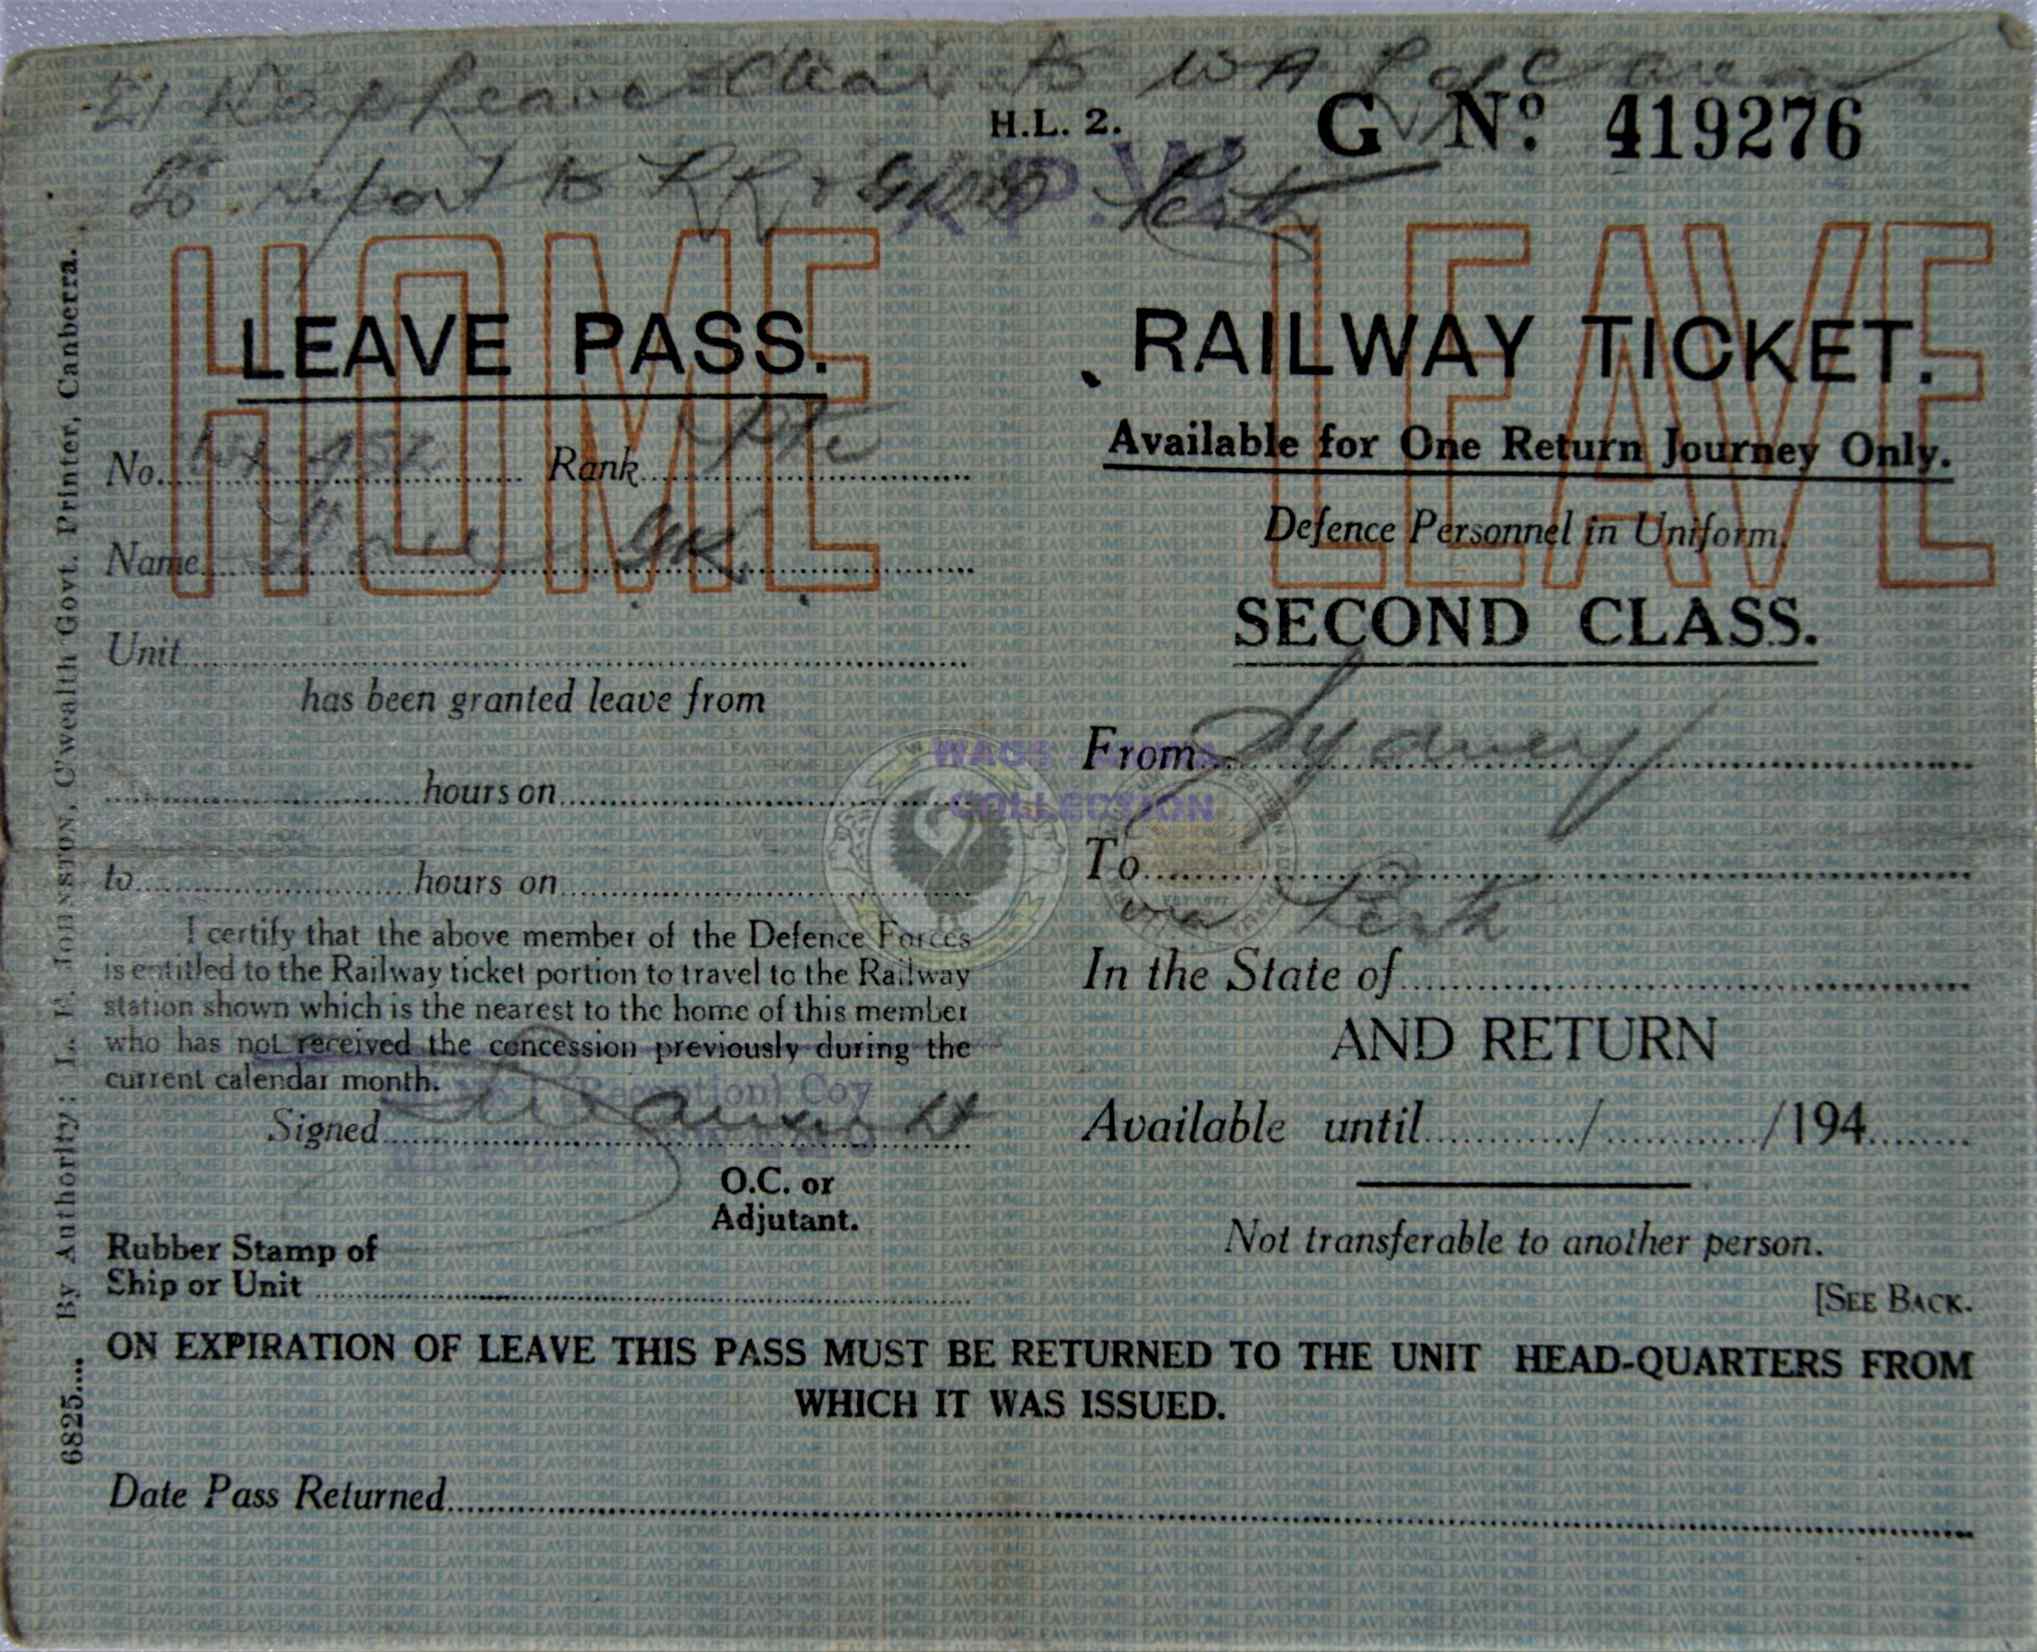 21 days leave clear to WA L of C area
To report to RR & GDD Perth
H.L. 2.
G Nº 419276
R.P.W.
HOME LEAVE
LEAVE PASS.
No. WX Rank Pte
Name G.K.
Unit
has been granted leave from
hours on
to hours on
I certify that the above member of the Defence Forces
is entitled to the Railway ticket portion to travel to the Railway
station shown which is the nearest to the home of this member
who has not received the concession previously during the
current calendar month.
(Reception) Coy
Signed Lt
O.C. or
Adjutant.
Rubber Stamp of
Ship or Unit
RAILWAY TICKET.
Available for One Return Journey Only.
Defence Personnel in Uniform.
SECOND CLASS.
From Sydney
To
via Perth
In the State of
AND RETURN
Available until / /194
Not transferable to another person.
[SEE BACK.
ON EXPIRATION OF LEAVE THIS PASS MUST BE RETURNED TO THE UNIT HEAD-QUARTERS FROM
WHICH IT WAS ISSUED.
Date Pass Returned
6825.... By Authority: L. F. JOHNSTON, C'wealth Govt. Printer, Canberra.
COLLECTION